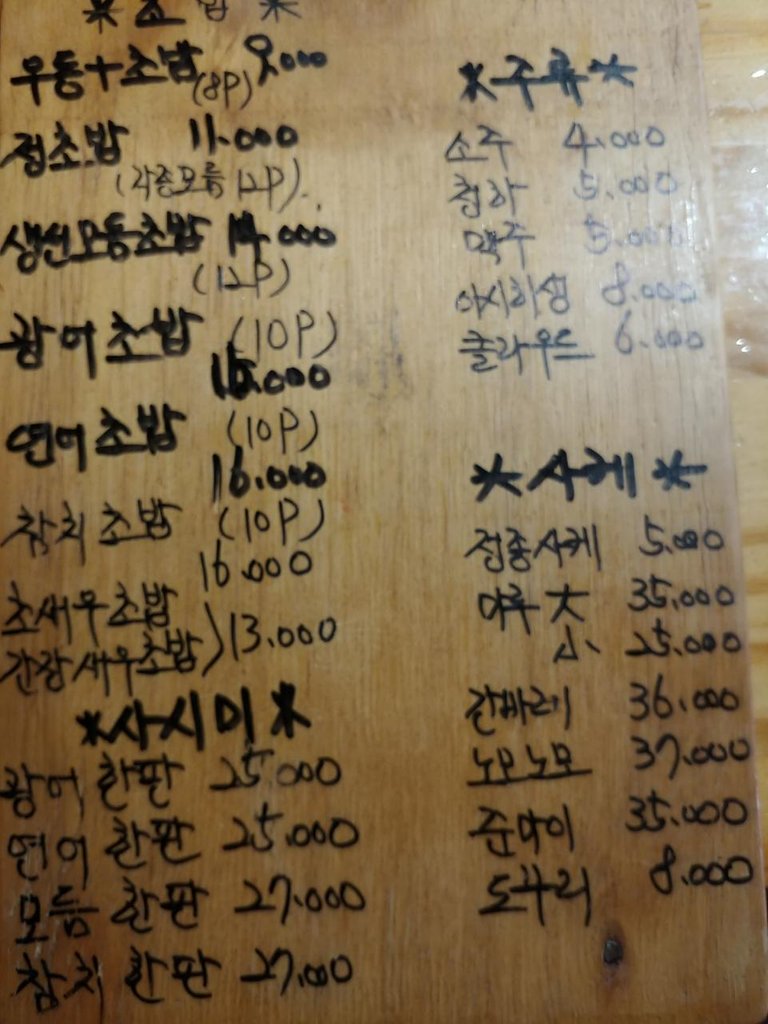 *초밥*
우동+초밥 9,000
(8P)
점초밥 11.000
(각종모듬 12P).
생선모듬초밥 14.000
(12P)
광어초밥 (10P)
16.000
연어초밥 (10P)
16.000
참치초밥 (10P)
16.000
초새우초밥
간장새우초밥 )13.000
*사시미*
광어 한판 25.000
연어 한판 25.000
모듬 한판 27.000
참치 한판 27.000
*주류*
소주 4.000
청하 5.000
맥주 5.000
아사히생 8.000
클라우드 6.000
*사케*
정종사케 5.000
야루 大 35.000
小 25.000
간바레 36.000
노모노모 37.000
준마이 35.000
도쿠리 8.000